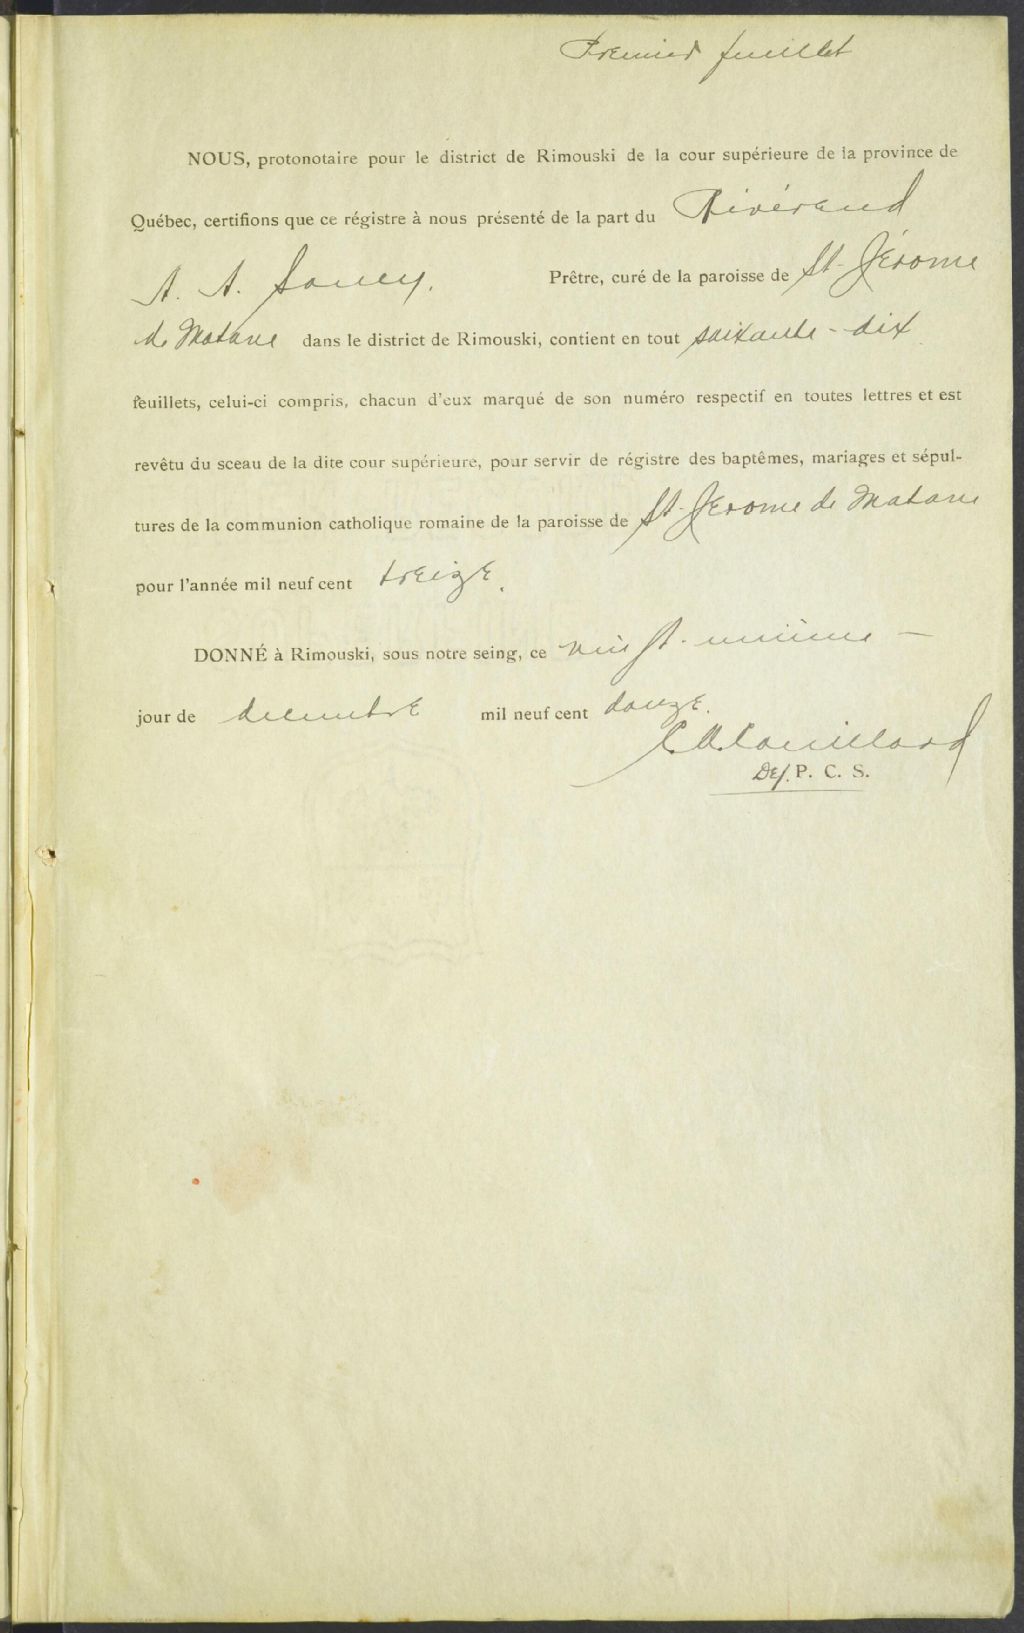 Premier feuillet
NOUS, protonotaire pour le district de Rimouski de la cour supérieure de la province de
Québec, certifions que ce régistre à nous présenté de la part du Révérend
A. A. Soucy. Prêtre, curé de la paroisse de St-Jérome
de Matane dans le district de Rimouski, contient en tout soixante-dix
feuillets, celui-ci compris, chacun d'eux marqué de son numéro respectif en toutes lettres et est
revêtu du sceau de la dite cour supérieure, pour servir de régistre des baptêmes, mariages et sépul-
tures de la communion catholique romaine de la paroisse de St-Jérome de Matane
pour l'année mil neuf cent treize.
DONNÉ à Rimouski, sous notre seing, ce vingt-unième —
jour de décembre mil neuf cent douze.
Couillard
Dep. P. C. S.